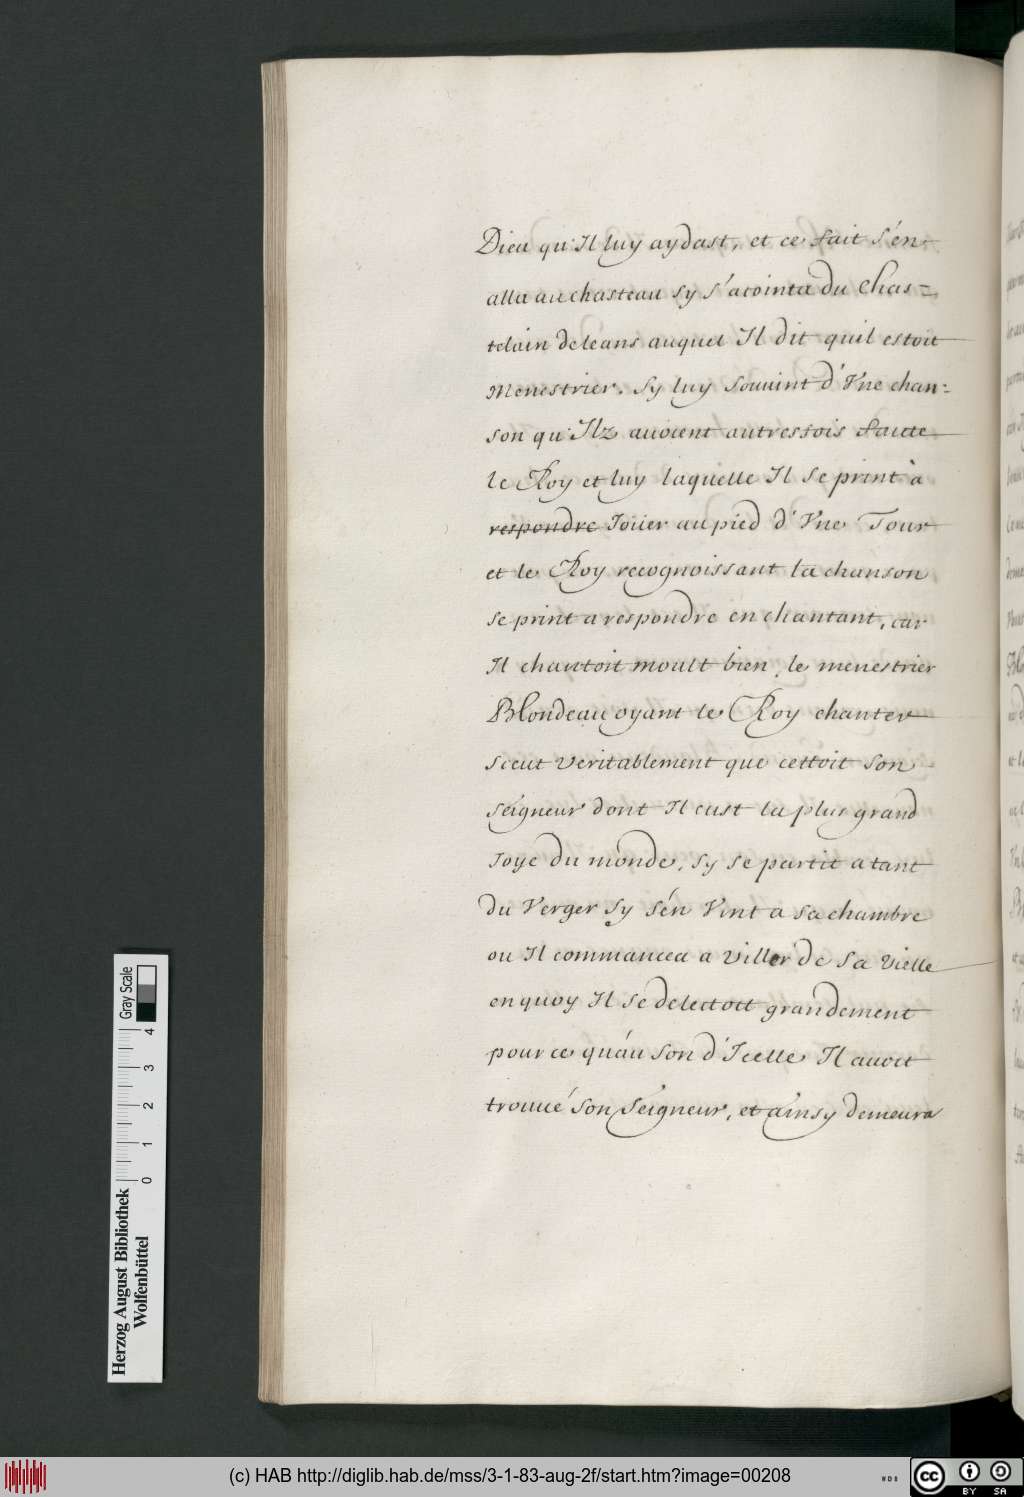 Dieu qu'Il luy aydast, et ce fait s'en
alla au chasteau sy s'acointa du Chas=
telain de leans auquel Il dit quil estoit
Menestrier. Sy luy souuint d'Vne chan=
son qu'Ilz auoient autresfois faicte
le Roy et luy laquelle Il se print à
respondre Joüer au pied d'Vne Tour
et le Roy recognoissant la chanson
se print a respondre en chantant, car
Il chantoit moult bien, le menestrier
Blondeau oyant le Roy chanter
sceut veritablement que cettoit son
seigneur dont Il eust la plus grand
Joye du monde, sy se partit a tant
du Verger sy s'en Vint a sa chambre
ou Il commancea a viller de sa vielle
en quoy Il se delectoit grandement
pour ce qu'au son d'Icelle Il auoit
trouué son seigneur, et ainsy demeura
Gray Scale
4
3
2
1
0
Herzog August Bibliothek
Wolfenbüttel
(c) HAB http://diglib.hab.de/mss/3-1-83-aug-2f/start.htm?image=00208
WDB
cc
BY SA